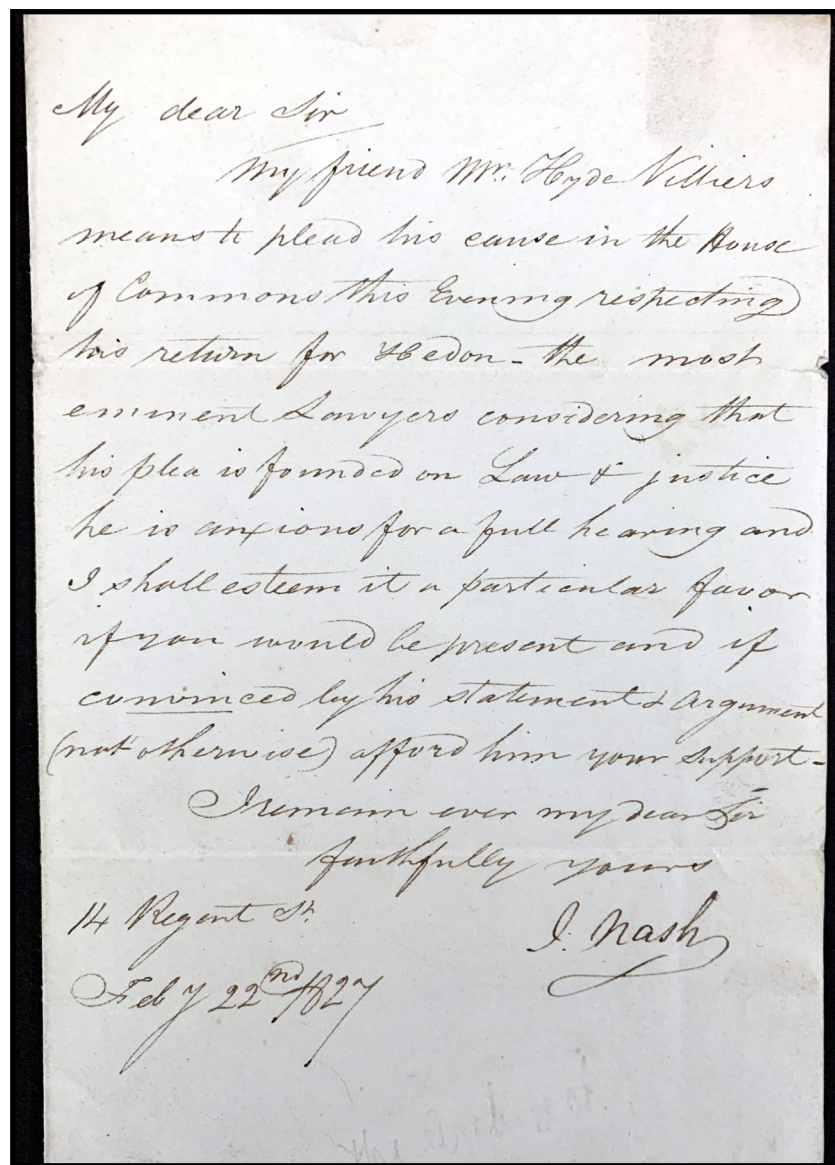 My dear Sir
My friend Mr. Hyde Villiers
means to plead his cause in the House
of Commons this Evening respecting
his return for Hedon - the most
eminent Lawyers considering that
his plea is founded on Law & justice
he is anxious for a full hearing and
I shall esteem it a particular favor
if you would be present and if
convinced by his statement & Argument
(not otherwise) afford him your support -
I remain ever my dear Sir
faithfully yours
14 Regent St.
J. Nash
Feby 22nd 1827